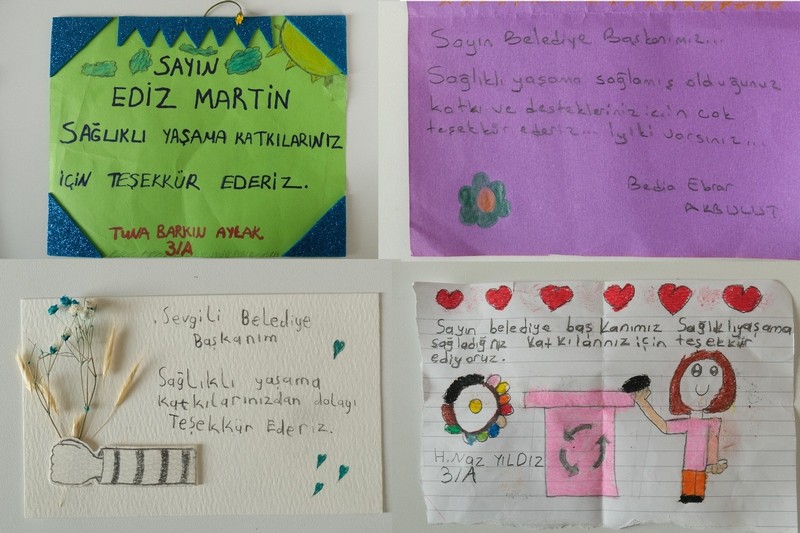 SAYIN
EDİZ MARTİN
SAĞLIKLI YAŞAMA KATKILARINIZ
İÇİN TEŞEKKÜR EDERİZ.
TUNA BARKIN AYLAK
3/A
Sayın Belediye Başkanımız...
Sağlıklı yaşama sağlamış olduğunuz
katkı ve destekleriniz için çok
teşekkür ederiz... İyiki varsınız...
Bedia Ebrar
AKBULUT
Sevgili Belediye
Başkanım
Sağlıklı yaşama
katkılarınızdan dolayı
Teşekkür Ederiz.
Sayın belediye başkanımız Sağlıklıyaşama
sağladığnız katkılarınız için teşekkür
ediyoruz.
H.Naz YILDIZ
3/A